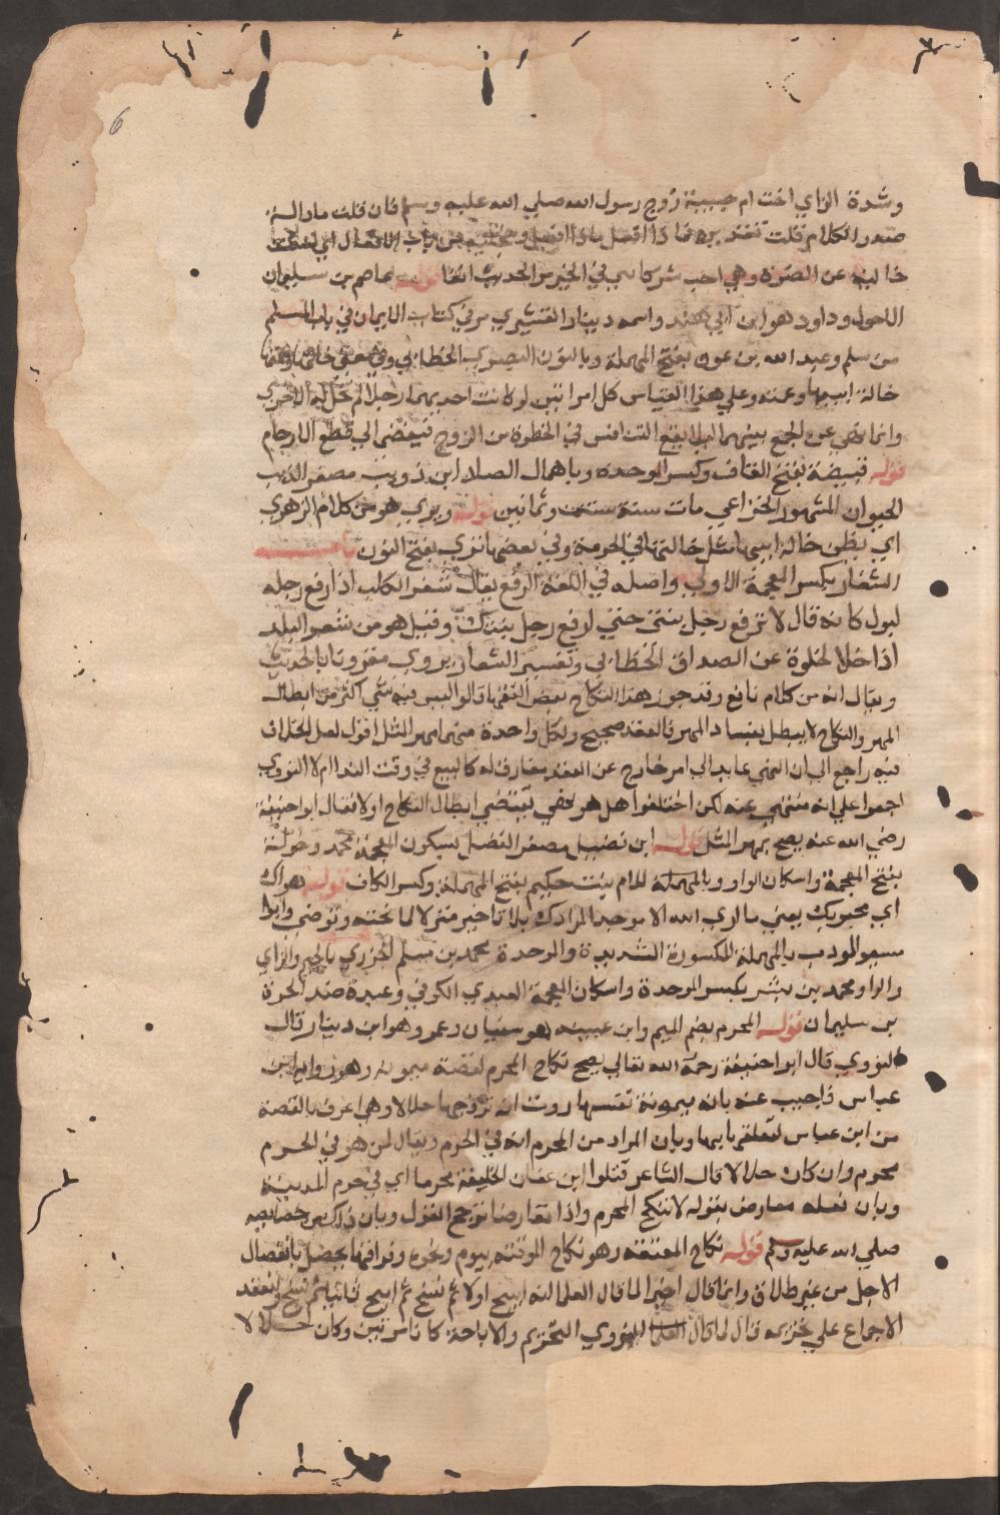 6
وشدة الزاي اخت ام حبيبة زوج رسول الله صلي الله عليه وسلم فان قلت ما
صدر الكلام قلت تقديره فاذا افعل ماذا افعل
خالية عن الضرة وهي احب شركاي في الخير مر الحديث انفا قوله عاصم بن سليمان
الاحول وداود هو ابن ابي هند واسمه دينار القشيري مر في كتاب الايمان في باب المسلم
من سلم وعبد الله بن عون بفتح المهملة وبالنون البصري الخطابي وفي معني خالتها وعمتها
خالة ابيها وعمته وعلي هذا القياس كل امراتين لو كانت احديهما رجلا لم تحل له الاخري
وانما نهي عن الجمع بينهما ليلا يقع التنافس في الحظوة من الزوج فيفضي الي قطع الارحام
قوله قبيصة بفتح القاف وكسر الموحدة وباهمال الصاد ابن ذويب مصغر الذيب
الحيوان المشهور الخزاعي مات سنة ست وثمانين قوله ونري هو من كلام الزهري
اي نظن خالة ابيها مثل خالتها في الحرمة وفي بعضها نري بفتح النون باب
الشغار بكسر المعجمة الاولي واصله في اللغة الرفع يقال شغر الكلب اذا رفع رجله
ليبول كانه قال لا ترفع رجل بنتي حتي ارفع رجل بنتك وقيل هو من شغر البلد
اذا خلا لخلوه عن الصداق الخطابي وتفسير الشغار يروي مقرونا بالحديث
ويقال انه من كلام نافع وقد جوز هذا النكاح بعض الفقها قالوا ليس فيه شي اكثر من ابطال
المهر والنكاح لا يبطل بفساد المهر فالعقد صحيح ولكل واحدة منهما مهر المثل اقول لعل الخلاف
فيه راجع الي ان النهي عايد الي امر خارج عن العقد مفارق له كالبيع في وقت الندا ام لا النووي
اجمعوا علي انه منهي عنه لكن اختلفوا هل هو نهي يقتضي ابطال النكاح او لا فقال ابو حنيفة
رضي الله عنه يصح بمهر المثل قوله ابن فضيل مصغر الفضل بسكون المعجمة محمد وخولة
بفتح المعجمة واسكان الواو وبالمهملة للام بنت حكيم بفتح المهملة وكسر الكاف قوله هواك
اي محبوبك يعني ما اري الله الا موجدا لمرادك بلا تاخير منزلا لما تحبه وترضي وابو
سعيد المودب بالمهملة المكسورة الشديدة والموحدة محمد بن مسلم الجزري بالجيم والزاي
والرا ومحمد بن بشر بكسر الموحدة واسكان المعجمة العبدي الكوفي وعبدة ضد الحرة
بن سليمان قوله المحرم بضم الميم وابن عيينه هو سفيان وعمرو هو ابن دينار قال
النووي قال ابو حنيفة رحمه الله تعالي يصح نكاح المحرم لقصة ميمونة وهو رواية ابن
عباس فاجيب عنه بان ميمونة نفسها روت انه تزوجها حلالا وهي اعرف بالقصة
من ابن عباس لتعلقها بها وبان المراد من المحرم انه في الحرم ويقال لمن هو في الحرم
محرم وان كان حلالا قال الشاعر قتلوا ابن عفان الخليفة محرما اي في حرم المدينة
وبان فعله معارض بقوله لا ينكح المحرم واذا تعارضا ترجح القول وبان ذلك من خصايصه
صلي الله عليه وسلم قوله نكاح المتعة وهو نكاح الموقت بيوم ونحوه وفراقها يحصل بانفصال
الاجل من غير طلاق وانما قال اخيرا لما قال العلما انه ابيح اولا ثم نسخ ثم ابيح ثانيا ثم نسخ وانعقد
الاجماع علي تحريمه قال لما قال النووي التحريم والاباحة كانا مرتين وكان حلالا